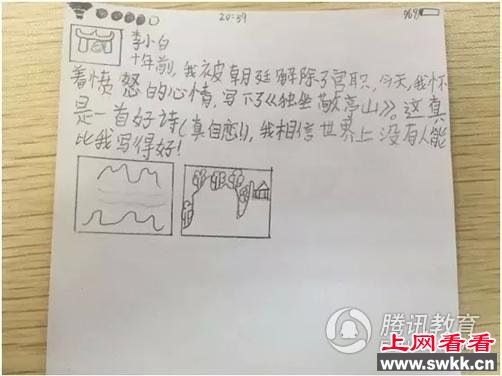 20:59
%8
李小白
十年前,我被朝廷解除了官职,今天,我怀
着愤怒的心情,写下了《独坐敬亭山》。这真
是一首好诗(真自恋!),我相信世界上没有人能
比我写得好!
腾讯教育
上网看看
www.swkk.cn